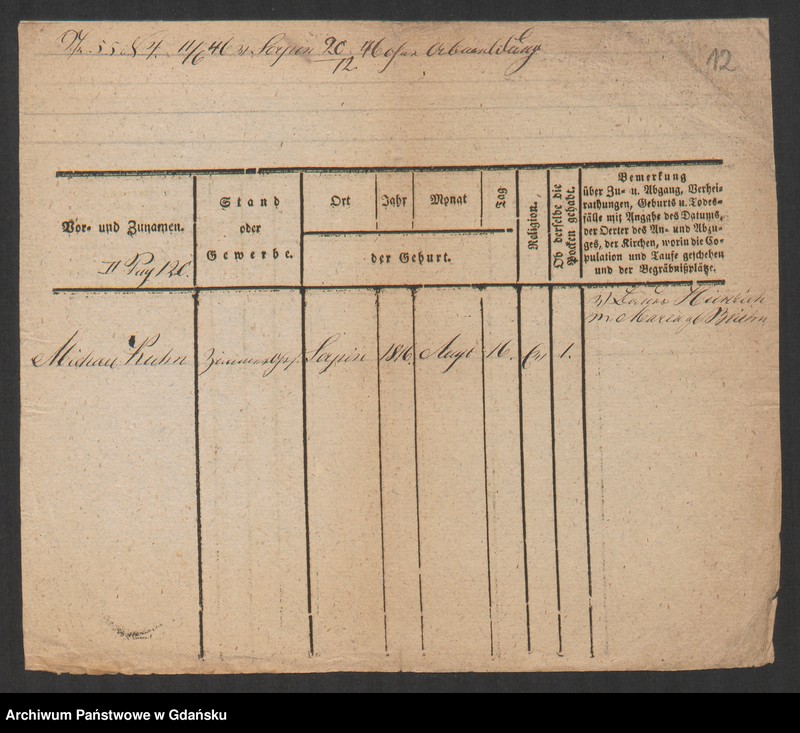 11/6 46 v Serpin 20/12 46
12
Vor- und Zunamen.
Stand
oder
Gewerbe.
Ort
Jahr
Monat
Tag
der Geburt.
Religion.
Ob derselbe die
Pocken gehabt.
Bemerkung
über Zu- u. Abgang, Verhei-
rathungen, Geburts u. Todes-
fälle mit Angabe des Datums,
der Oerter des An- und Abzu-
ges, der Kirchen, worin die Co-
pulation und Taufe geschehen
und der Begräbnißplätze.
II Pag
Heinrich
Michael Kuhn
Zimmergs. Serpin 1816. Augt 16. Ev 1.
Archiwum Państwowe w Gdańsku